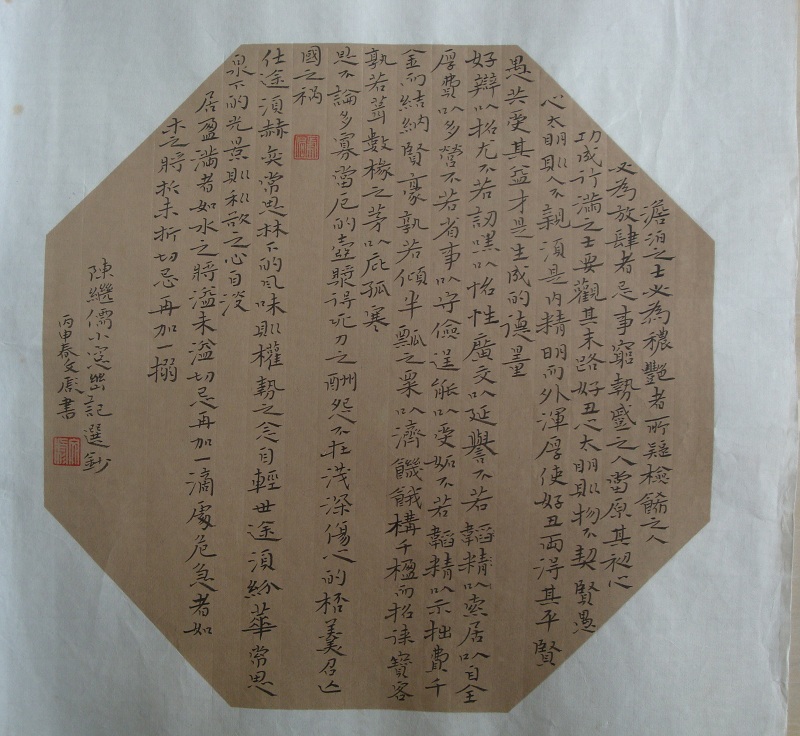 澹泊之士必為穠艷者所疑檢飾之人
必為放肆者忌事窮勢蹙之人當原其初心
功成行滿之士要觀其末路好丑心太明則物不契賢愚
心太明則人不親須是內精明而外渾厚使好丑両得其平賢
愚共受其益才是生成的德量
好辯以招尤不若訒嘿以怡性廣交以延譽不若韜精以索居以自全
厚費以多營不若省事以守儉逞能以受妬不若韜精以示拙費千
金而結納賢豪孰若傾半瓢之粟以濟饑餓構千楹而招徠賓客
孰若葺數椽之茅以庇孤寒
恩不論多寡當厄的壺漿得死力之酬怨不在淺深傷心的桮羹召亡
國之禍
仕途須赫奕常思林下的風味則權勢之念自輕世途須紛華常思
泉下的光景則利欲之心自淡
居盈滿者如水之將溢未溢切忌再加一滴處危急者如
木之將折未折切忌再加一搦
陳繼儒小窓幽記選鈔
丙申春文彥書